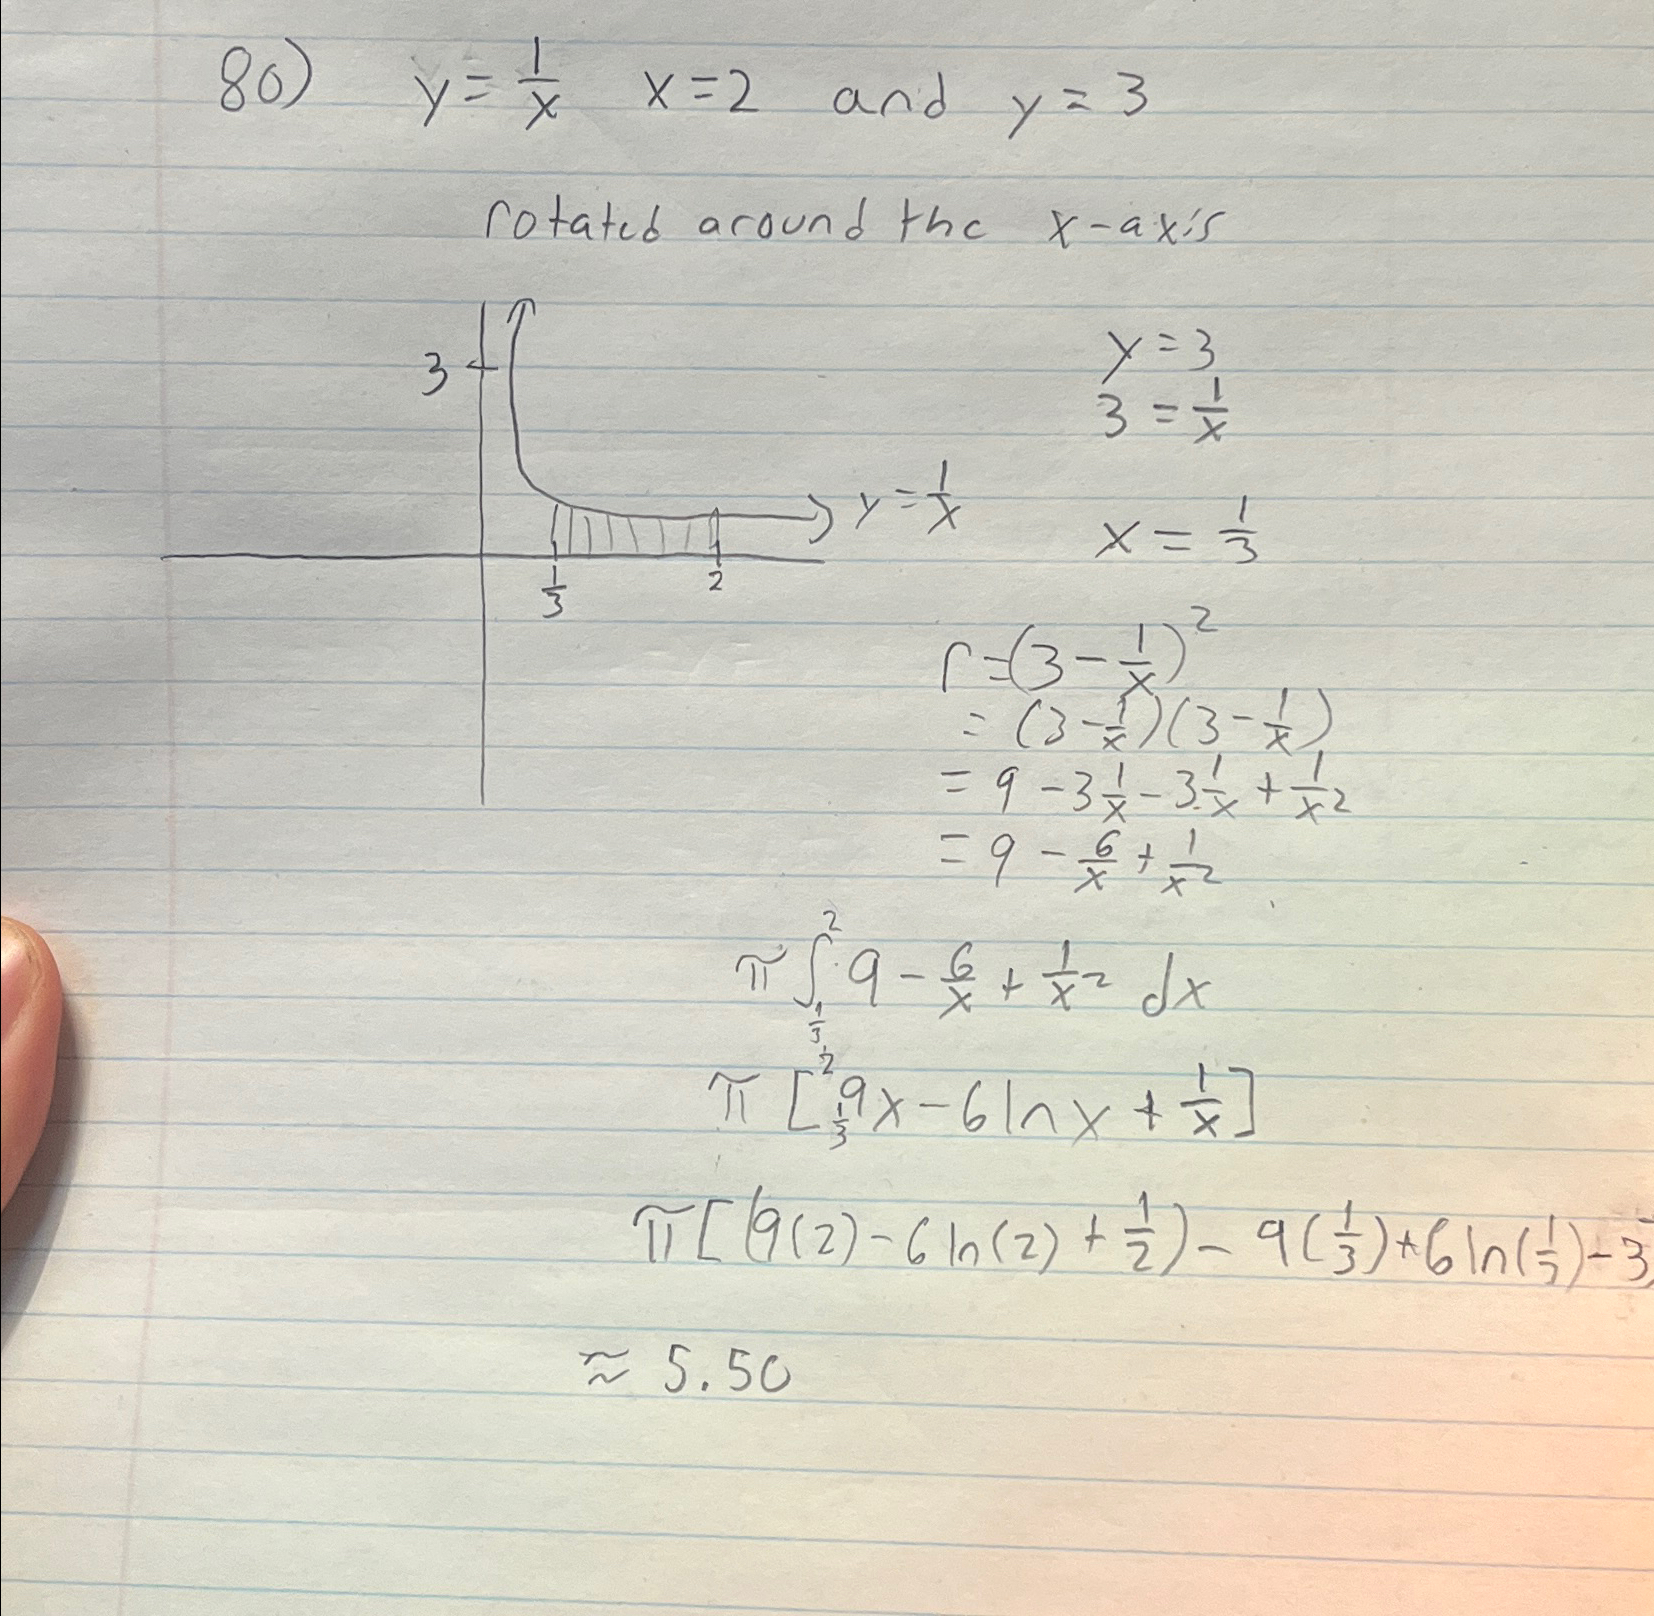 80) y = 1/x x = 2 and y = 3
rotated around the x-axis
3
y = 3
3 = 1/x
y = 1/x
x = 1/3
1/3 2
r = (3 - 1/x)²
= (3 - 1/x)(3 - 1/x)
= 9 - 3 1/x - 3·1/x + 1/x²
= 9 - 6/x + 1/x²
π ∫_{1/3}^{2} 9 - 6/x + 1/x² dx
π [_{1/3}^{2} 9x - 6 ln x + 1/x]
π [(9(2) - 6 ln(2) + 1/2) - 9(1/3) + 6 ln(1/3) - 3
≈ 5.50